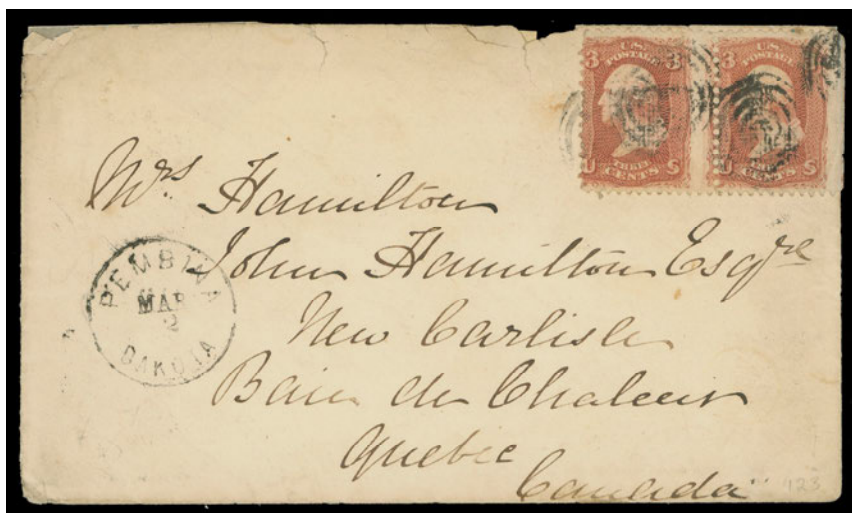 3 U.S. POSTAGE 3
U THREE CENTS S
3 U.S. POSTAGE
U CENTS S
Mrs Hamilton
John Hamilton Esqre
New Carlisle
Baie de Chaleur
Quebec
Canada
PEMBINA
MAR
2
DAKOTA
423